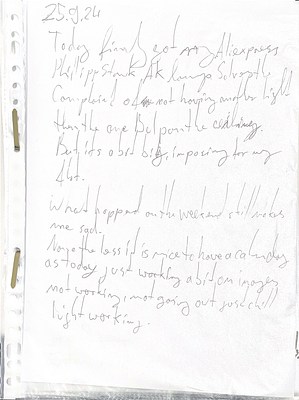 25.9.24
Today finally got my Aliexpress
Philipp Stark, AK lamp
Complained of not having another light
than the one Bulp on the ceiling.
But its a bit big, imposing for my
flat.
What happed on the weekend still makes
me sad.
None the less it is nice to have a calm day
as today, just working a bit on images
not working, not going out just chill
light working.